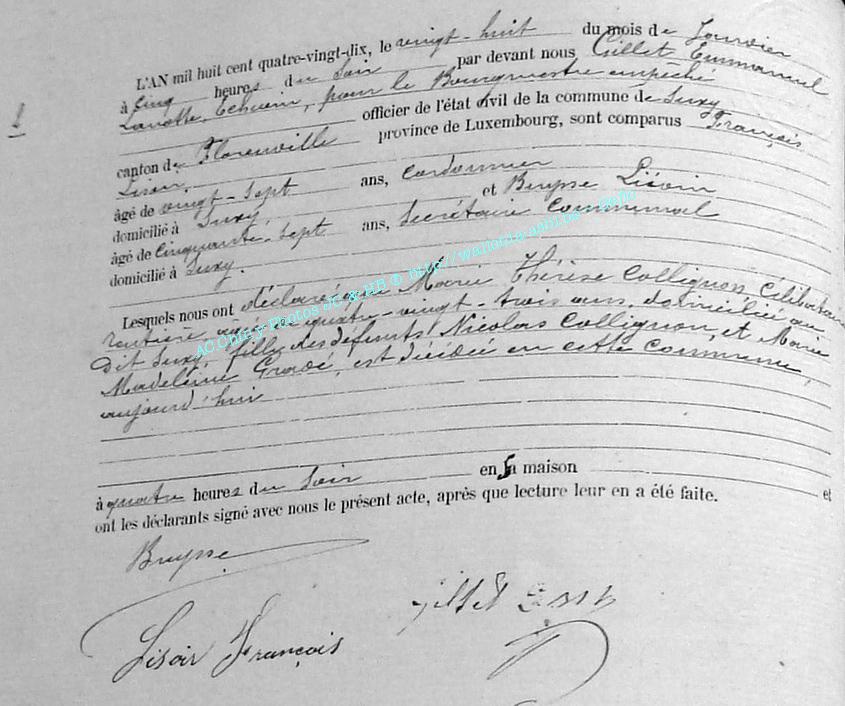 1
L'AN mil huit cent quatre-vingt-dix, le vingt-huit du mois de Janvier
à cinq heures du soir par devant nous Gillet Emmanuel
pour le Bourgmestre empêché
officier de l'état civil de la commune de Suxy
canton de Florenville province de Luxembourg, sont comparus François
Lisoir,
âgé de vingt-sept ans, Cordonnier
domicilié à Suxy, et Buysse
âgé de cinquante-sept ans, Secrétaire Communal
domicilié à Suxy.
Lesquels nous ont déclaré que Marie Thérèse Collignon Célibataire
rentière âgée de quatre-vingt-trois ans, domiciliée au
dit Suxy, fille des défunts Nicolas Collignon, et Marie
Madeleine est décédée en cette Commune,
aujourd'hui
à quatre heures du soir en sa maison et
ont les déclarants signé avec nous le présent acte, après que lecture leur en a été faite.
Buysse
Gillet
Lisoir François
AC Chiny Photos JC & HB © http://wallonie.ashi.be